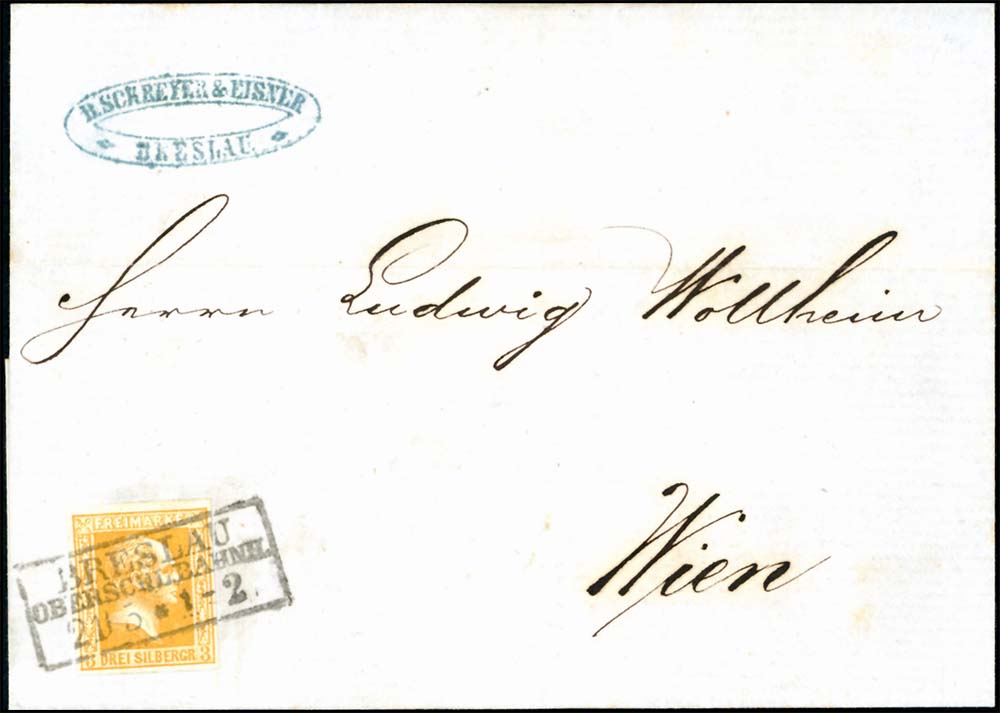 B. SCHREYER & EISNER
BRESLAU
Herrn Ludwig Wollheim
Wien
FREIMARKE
BRESLAU
OBERSCHL. BAHNH.
20 5 * 1 - 2.
3 DREI SILBERGR. 3